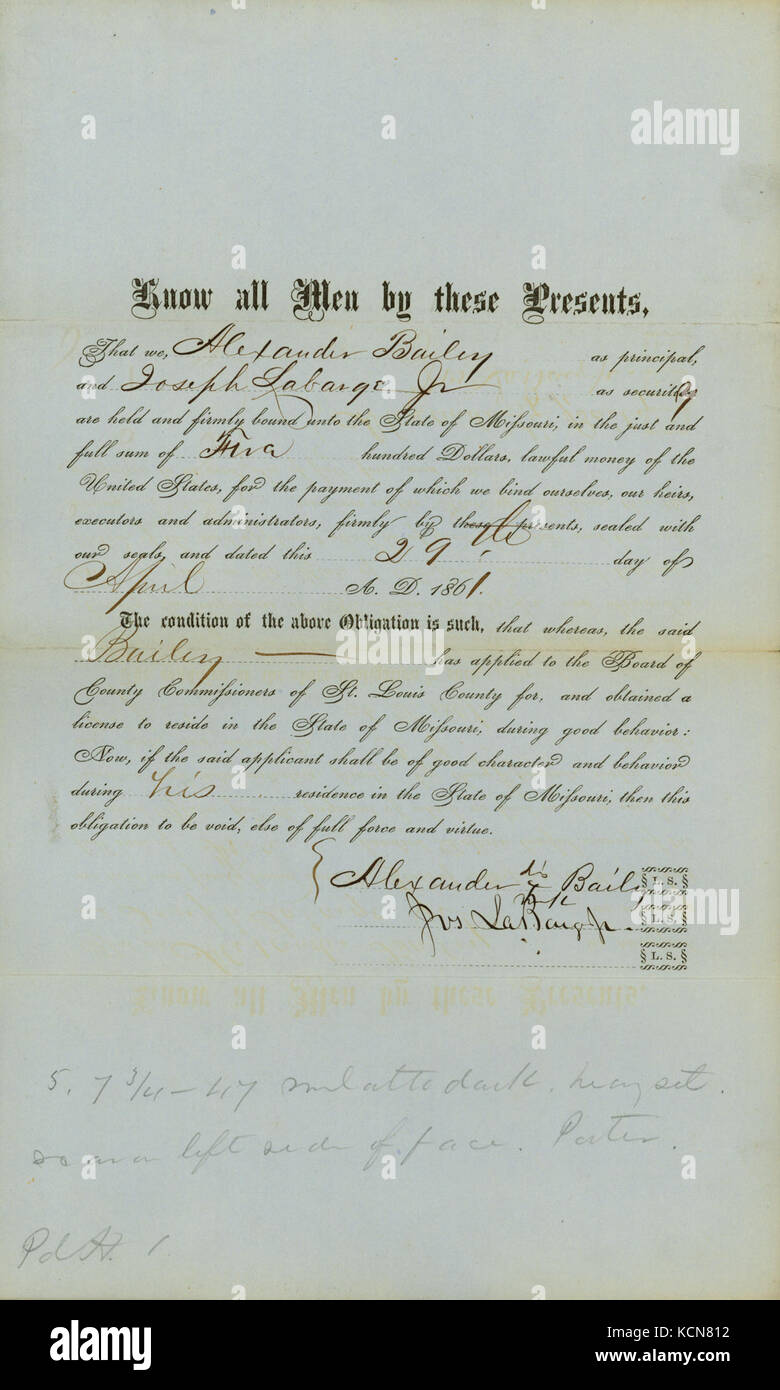 Know all Men by these Presents,
That we, Alexander Bailey as principal,
and Joseph Labarge Jr as security
are held and firmly bound unto the State of Missouri, in the just and
full sum of Five hundred Dollars, lawful money of the
United States, for the payment of which we bind ourselves, our heirs,
executors and administrators, firmly by these presents, sealed with
our seals, and dated this 29th day of
April A. D. 1861.
The condition of the above Obligation is such, that whereas, the said
Bailey has applied to the Board of
County Commissioners of St. Louis County for, and obtained a
license to reside in the State of Missouri, during good behavior:
Now, if the said applicant shall be of good character and behavior
during his residence in the State of Missouri, then this
obligation to be void, else of full force and virtue.
Alexander his Baily § L. S. §
Jos LaBarge Jr § L. S. §
§ L. S. §
5. 7 3/4 - 47 mulatto dark. heavy set.
scar on left side of face. Porter.
Pd
a alamy
alamy
Image ID: KCN812
www.alamy.com